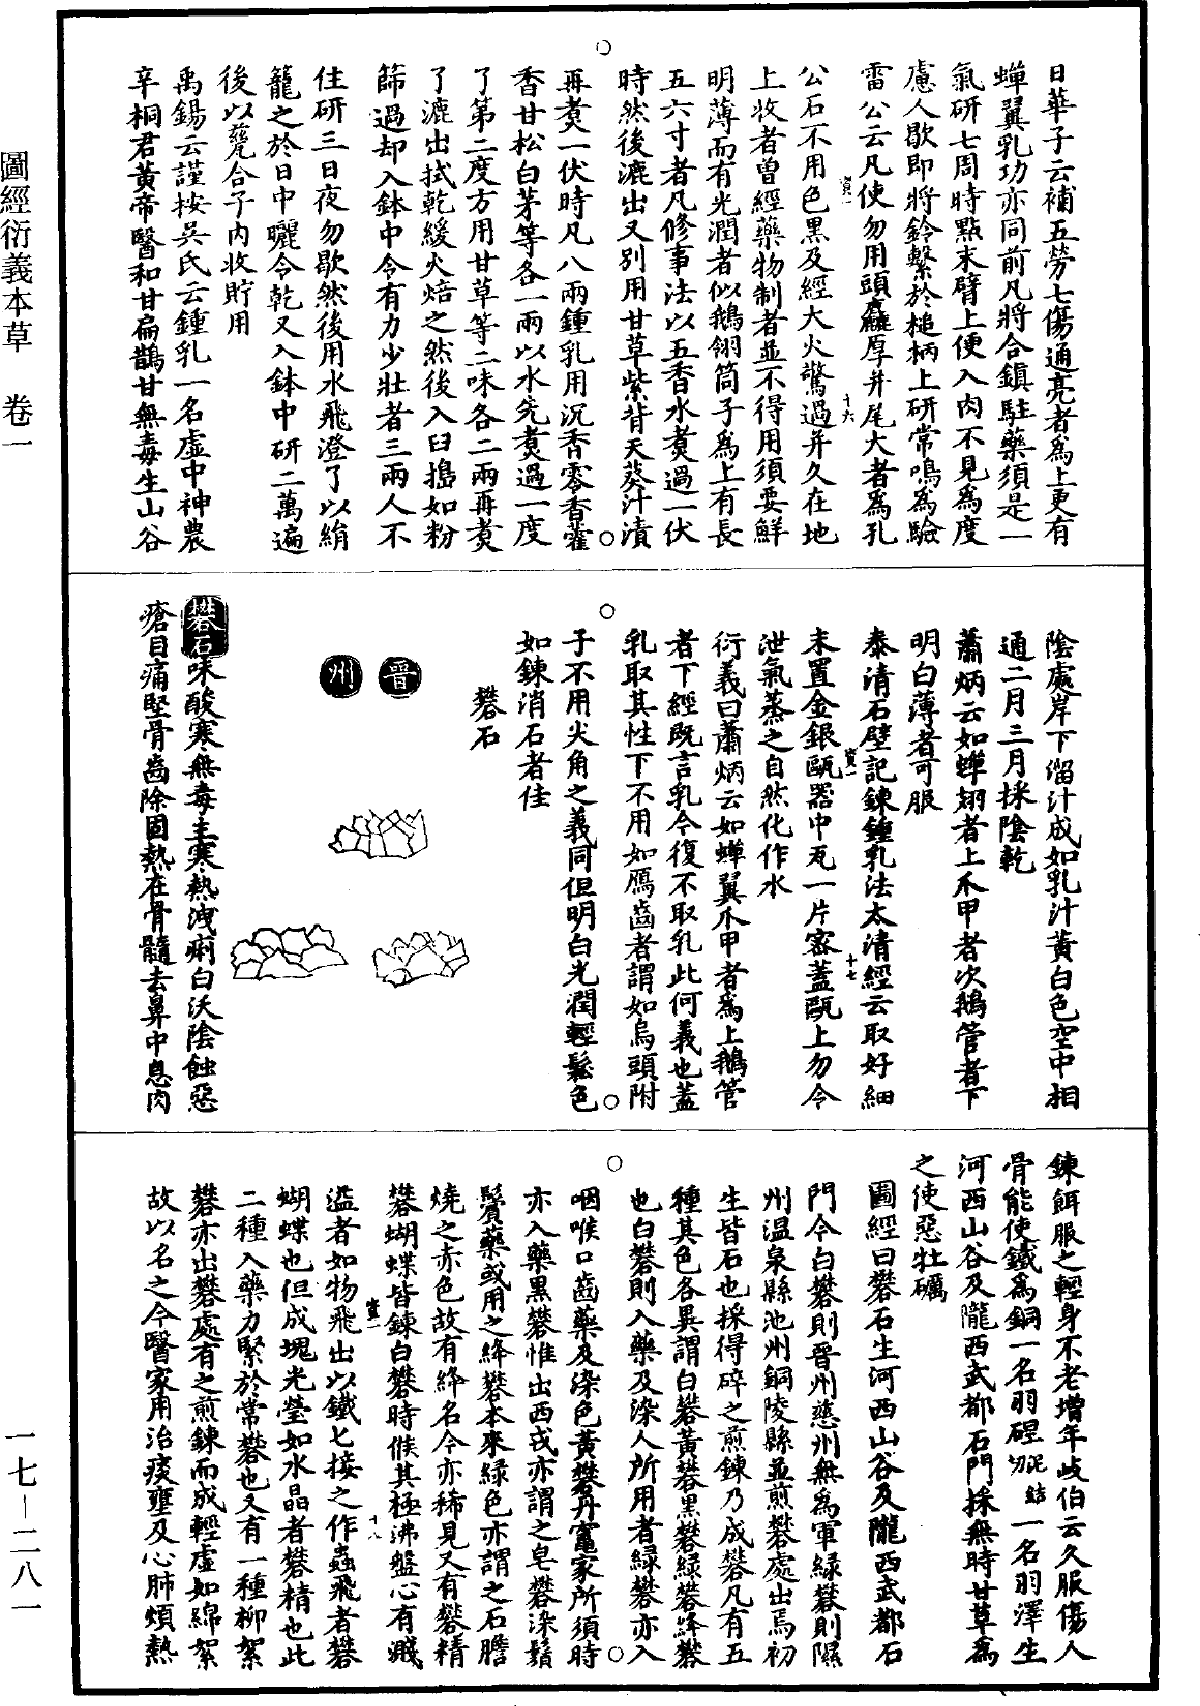 日華子云補五勞七傷通亮者為上更有
蟬翼乳功亦同前凡將合鎮駐藥須是一
氣研七周時點末臂上便入肉不見為度
慮人歇即將鈴繫於槌柄上研常鳴為驗
雷公云凡使勿用頭麤厚并尾大者為孔
公石不用色黑及經大火驚過并久在地
上收者曾經藥物制者並不得用須要鮮
明薄而有光潤者似鵝翎筒子為上有長
五六寸者凡修事法以五香水煑過一伏
時然後漉出又別用甘草紫背天葵汁漬
再煑一伏時凡八兩鍾乳用沉香零香藿
香甘松白茅等各一兩以水先煑過一度
了第二度方用甘草等二味各二兩再煑
了漉出拭乾緩火焙之然後入臼搗如粉
篩過却入鉢中令有力少壯者三兩人不
住研三日夜勿歇然後用水飛澄了以絹
籠之於日中曬令乾又入鉢中研二萬遍
後以甆合子内收貯用
禹錫云謹按吳氏云鍾乳一名虛中神農
辛桐君黃帝醫和甘扁鵲甘無毒生山谷
陰處岸下溜汁成如乳汁黃白色空中相
通二月三月採陰乾
蕭炳云如蟬翅者上爪甲者次鵝管者下
明白薄者可服
泰清石壁記鍊鍾乳法太清經云取好細
末置金銀甌器中瓦一片密蓋甌上勿令
泄氣蒸之自然化作水
衍義曰蕭炳云如蟬翼爪甲者為上鵝管
者下經既言乳今復不取乳此何義也蓋
乳取其性下不用如鴈齒者謂如烏頭附
子不用尖角之義同但明白光潤輕鬆色
如鍊消石者佳
礬石
晉
州
礬石味酸寒無毒主寒熱洩痢白沃陰蝕惡
瘡目痛堅骨齒除固熱在骨髓去鼻中息肉
鍊餌服之輕身不老增年歧伯云久服傷人
骨能使鐵為銅一名羽䂳泥結切一名羽澤生
河西山谷及隴西武都石門採無時甘草為
之使惡牡礪
圖經曰礬石生河西山谷及隴西武都石
門今白礬則晉州慈州無為軍綠礬則隰
州溫泉縣池州銅陵縣並煎礬處出焉初
生皆石也採得碎之煎鍊乃成礬凡有五
種其色各異謂白礬黃礬黑礬綠礬絳礬
也白礬則入藥及染人所用者綠礬亦入
咽喉口齒藥及染色黃礬丹竈家所須時
亦入藥黑礬惟出西戎亦謂之皂礬染鬚
鬢藥或用之絳礬本來緑色亦謂之石膽
燒之赤色故有絳名今亦稀見又有礬精
礬蝴蝶皆鍊白礬時候其極沸盤心有濺
溢者如物飛出以鐵匕接之作蟲飛者礬
蝴蝶也但成塊光瑩如水晶者礬精也此
二種入藥力緊於常礬也又有一種柳絮
礬亦出礬處有之煎鍊而成輕虛如綿絮
故以名之今醫家用治痰壅及心肺煩熱
圖經衍義本草　卷一
一七—二八一
十六
十七
十八